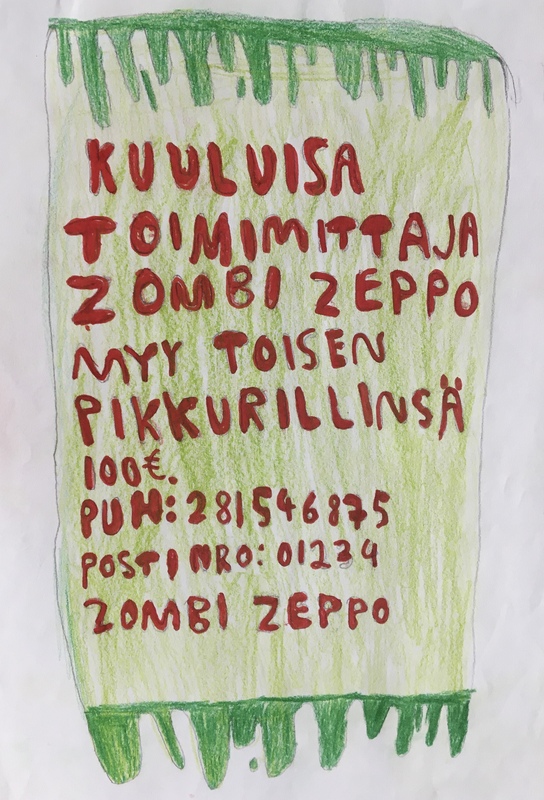 KUULUISA
TOIMIMITTAJA
ZOMBI ZEPPO
MYY TOISEN
PIKKURILLINSÄ
100€.
PUH: 281546875
POSTI NRO: 01234
ZOMBI ZEPPO